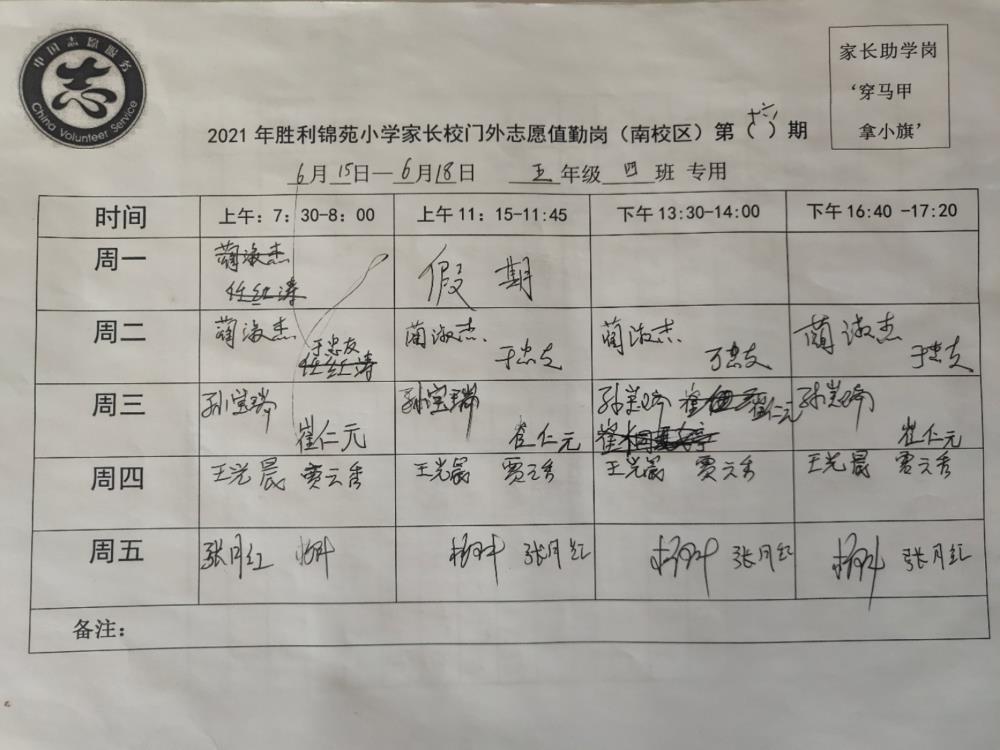 中国志愿服务
志
China Volunteer Service
家长助学岗
‘穿马甲
拿小旗’
2021年胜利锦苑小学家长校门外志愿值勤岗（南校区）第（十六）期
6月15日—6月18日 五年级 四 班 专用
时间 上午：7：30-8：00 上午11：15-11:45 下午13:30-14:00 下午16:40 -17:20
周一 蔺淑杰 假期
任红涛
周二 蔺淑杰 于忠友 蔺淑杰 于忠友 蔺淑杰 于忠友 蔺淑杰 于忠友
任红涛
周三 孙宝瑞 崔仁元 孙宝瑞 崔仁元 崔仁元 崔仁元
周四 王光晨 贾云秀 王光晨 贾云秀 王光晨 贾云秀 王光晨 贾云秀
周五 张月红 张月红 张月红 张月红
备注：